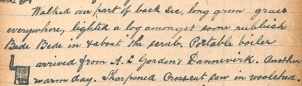 Walked over part of back Sec, long green grass
everywhere, lighted a log amongst some rubbish
Bede Bede in & about the scrub. Portable boiler
arrived from A. L Gordon's Dannevirk. Another
warm day. Sharpened Crosscut saw in woolshed.